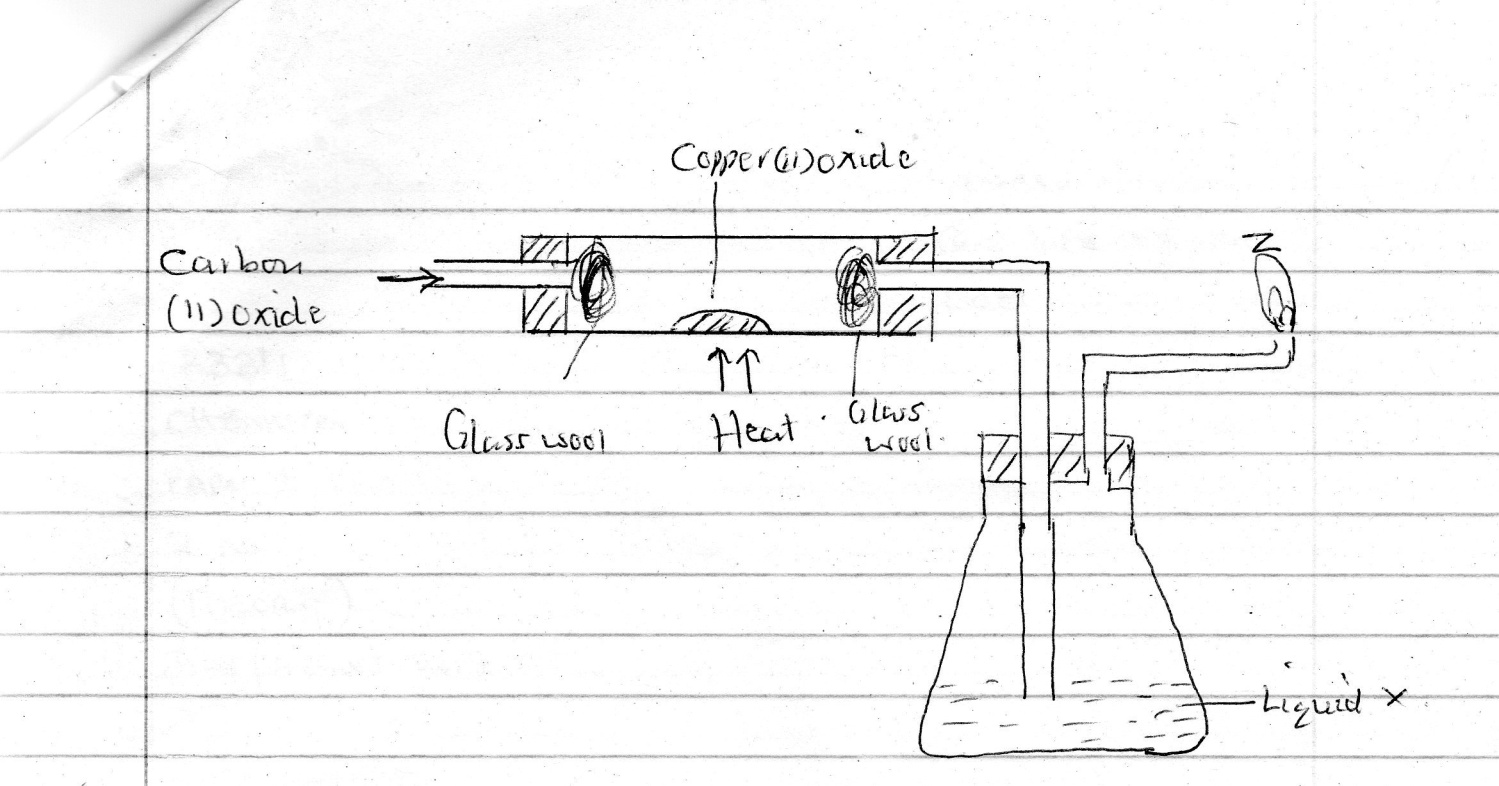 Copper(II)oxide
Z
Carbon
(II) oxide
Glass wool
Heat
Glass
wool.
Liquid X